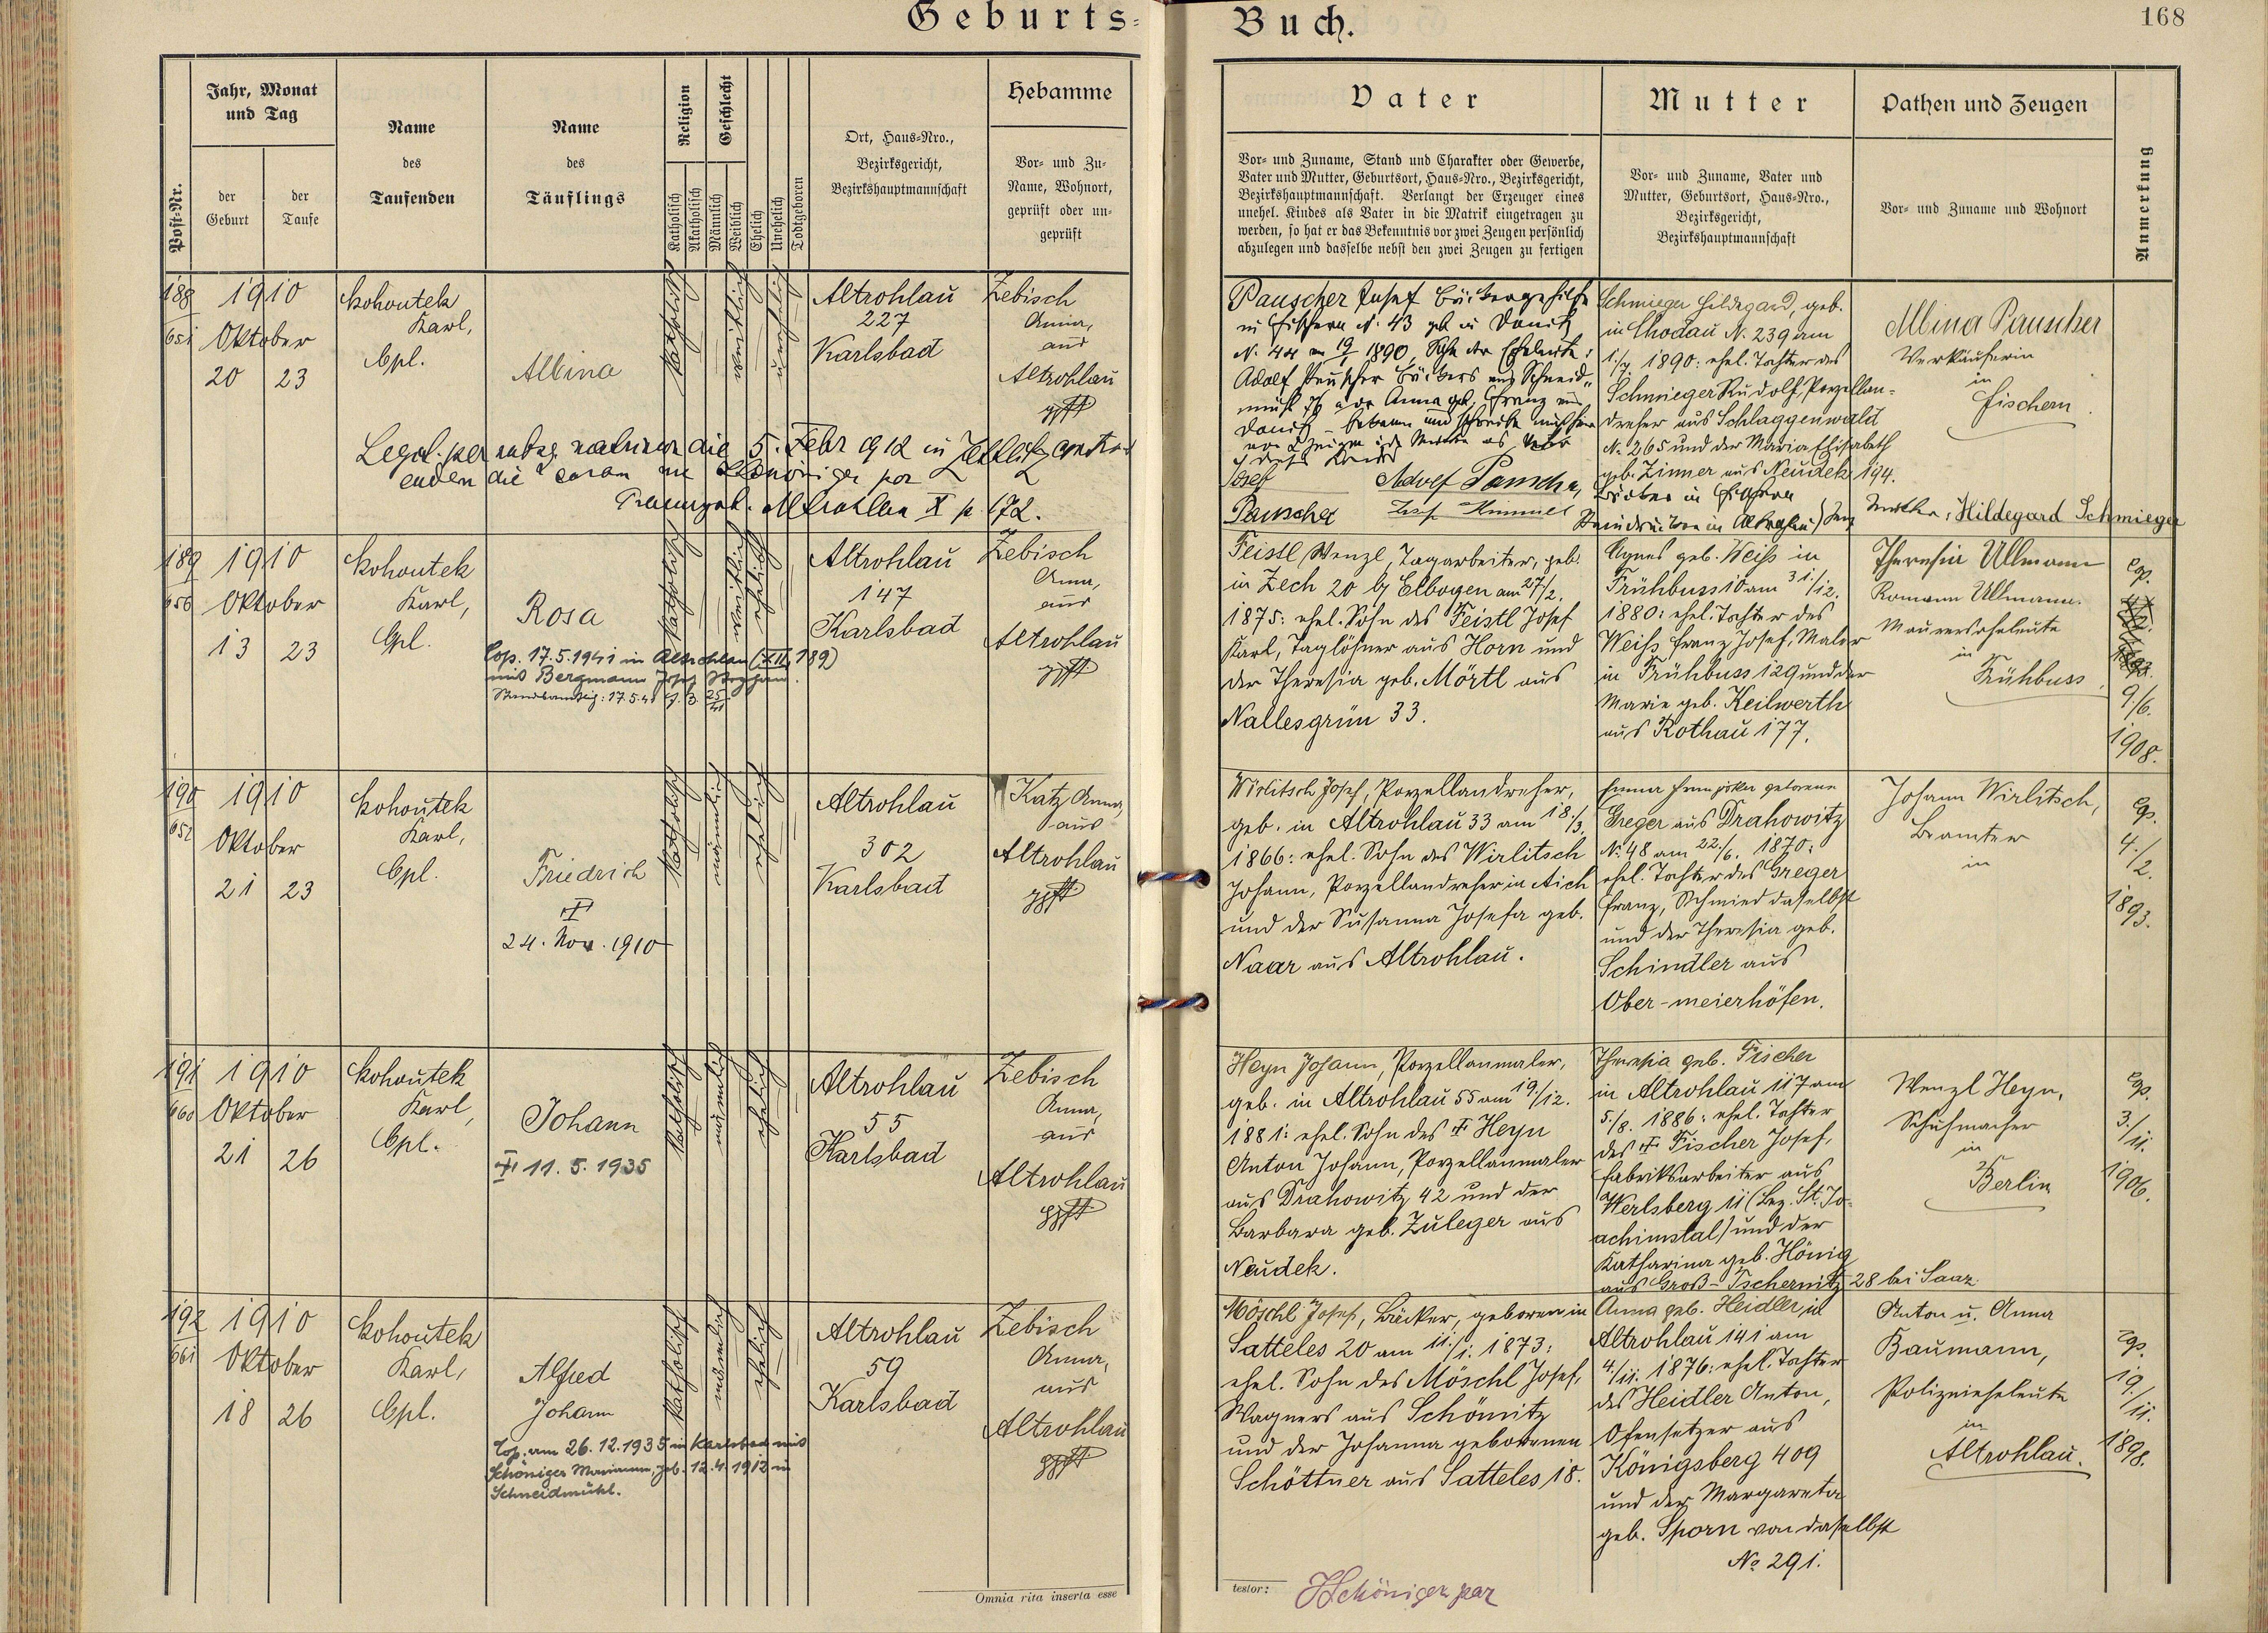 Geburts-Buch.
168
Post-Nr.
Jahr, Monat und Tag
der Geburt
der Taufe
Name des Taufenden
Name des Täuflings
Religion
Katholisch
Akatholisch
Geschlecht
Männlich
Weiblich
Ehelich
Unehelich
Todtgeboren
Ort, Haus-Nro.,
Bezirksgericht,
Bezirkshauptmannschaft
Hebamme
Vor- und Zu-
Name, Wohnort,
geprüft oder un-
geprüft
Vater
Vor- und Zuname, Stand und Charakter oder Gewerbe,
Vater und Mutter, Geburtsort, Haus-Nro., Bezirksgericht,
Bezirkshauptmannschaft. Verlangt der Erzeuger eines
unehel. Kindes als Vater in die Matrik eingetragen zu
werden, so hat er das Bekenntnis vor zwei Zeugen persönlich
abzulegen und dasselbe nebst den zwei Zeugen zu fertigen
Mutter
Vor- und Zuname, Vater und
Mutter, Geburtsort, Haus-Nro.,
Bezirksgericht,
Bezirkshauptmannschaft
Pathen und Zeugen
Vor- und Zuname und Wohnort
Anmerkung
188
651
1910
Oktober
20 23
Kohoutek
Karl,
Cpl.
Albina
katholisch
weiblich
unehelich
Altrohlau
227
Karlsbad
Zebisch
Anna,
aus
Altrohlau
gpft
Legit. per subsq. matrimon. die 5. Febr 1912 in Zettlitz
Trauungsb. Altrohlau X p. 172.
Pauscher Josef Bäckergehilfe
in Fischern N. 43 geb in Donitz
N. 44 am 19/ 1890, Sohn der Eheleute:
Adolf Pauscher Bäckers aus Schneid-
mühl 76 und der Anna geb. Franz aus
Donitz
Josef
Pauscher
Adolf Pauscher,
Josef Himmel
Schmieger Hildegard, geb.
in Chodau N. 239 am
1./7. 1890: ehel. Tochter des
Schmieger Rudolf, Porzellan-
dreher aus Schlaggenwald
N. 265 und der Maria Elisabeth
geb. Zinner aus Neudek 194.
Bäcker in Fischern
Mutter: Hildegard Schmieger
Albina Pauscher
Verkäuferin
in
Fischern.
189
656
1910
Oktober
13 23
Kohoutek
Karl,
Cpl.
Rosa
Cop. 17.5.1941 in Altrohlau (XII, 189)
mit Bergmann Josef Stephan.
Standesamtlich: 17.5.41 J. Z. 25/41
katholisch
weiblich
ehelich
Altrohlau
147
Karlsbad
Zebisch
Anna,
aus
Altrohlau
gpft
Feistl Wenzl, Tagarbeiter, geb.
in Zech 20 bj Elbogen am 27./2.
1875: ehel. Sohn des Feistl Josef
Karl, Taglöhner aus Horn und
der Theresia geb. Mörtl aus
Nallesgrün 33.
Agnes geb. Weiß in
Frühbuss 10 am 31./12.
1880: ehel. Tochter des
Weiß Franz Josef, Maler
in Frühbuss 129 und der
Marie geb. Keilwerth
aus Rothau 177.
Theresia Ullmann
Romann Ullmann.
Maurerseheleute
in
Frühbuss.
Cp.
9./6.
1908.
190
652
1910
Oktober
21 23
Kohoutek
Karl,
Cpl.
Friedrich
†
24. Nov. 1910
katholisch
männlich
ehelich
Altrohlau
302
Karlsbad
Katz Anna,
aus
Altrohlau
gpft
Wirlitsch Josef, Porzellandreher,
geb. in Altrohlau 33 am 18./3.
1866: ehel. Sohn des Wirlitsch
Johann, Porzellandreher in Aich
und der Susanna Josefa geb.
Naar aus Altrohlau.
Emma Franziska geborene
Greger aus Drahowitz
N. 48 am 22./6. 1870:
ehel. Tochter des Greger
Franz, Schmied daselbst
und der Theresia geb.
Schindler aus
Ober-meierhöfen.
Johann Wirlitsch,
Beamter
in
Cp.
4./2.
1893.
191
660
1910
Oktober
21 26
Kohoutek
Karl,
Cpl.
Johann
† 11.5.1935
katholisch
männlich
ehelich
Altrohlau
55
Karlsbad
Zebisch
Anna,
aus
Altrohlau
gpft
Heyn Johann, Porzellanmaler,
geb. in Altrohlau 55 am 19./12.
1881: ehel. Sohn des † Heyn
Anton Johann, Porzellanmaler
aus Drahowitz 42 und der
Barbara geb. Zuleger aus
Neudek.
Theresia geb. Fischer
in Altrohlau 117 am
5./8. 1886: ehel. Tochter
des † Fischer Josef,
Fabriksarbeiter aus
Werlsberg 11 (Bez. St. Jo-
achimstal) und der
Katharina geb. Hönig
aus Groß-Tschernitz 28 bei Saaz.
Wenzl Heyn,
Schuhmacher
in
Berlin
Cp.
3./11.
1906.
192
661
1910
Oktober
18 26
Kohoutek
Karl,
Cpl.
Alfred
Johann
Cop. am 26.12.1935 in Karlsbad mit
Schöniger Marianne, geb. 12.4.1912 in
Schneidmühl.
katholisch
männlich
ehelich
Altrohlau
59
Karlsbad
Zebisch
Anna,
aus
Altrohlau
gpft
Möschl Josef, Bäcker, geboren in
Satteles 20 am 11./1. 1873:
ehel. Sohn des Möschl Josef,
Wagners aus Schömitz
und der Johanna geborenen
Schöttner aus Satteles 18.
Anna geb. Heidler in
Altrohlau 141 am
4./11. 1876: ehel. Tochter
des Heidler Anton,
Ofensetzer aus
Königsberg 409
und der Margareta
geb. Sporn von daselbst
No 291.
Anton u. Anna
Baumann,
Polizeieheleute
in
Altrohlau.
Cp.
19./11.
1898.
Omnia rita inserta esse
testor:
JSchöniger par